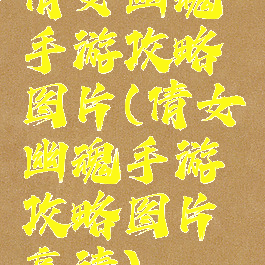 倩女幽魂
手游攻略
图片(倩女
幽魂手游
攻略图片
高清)